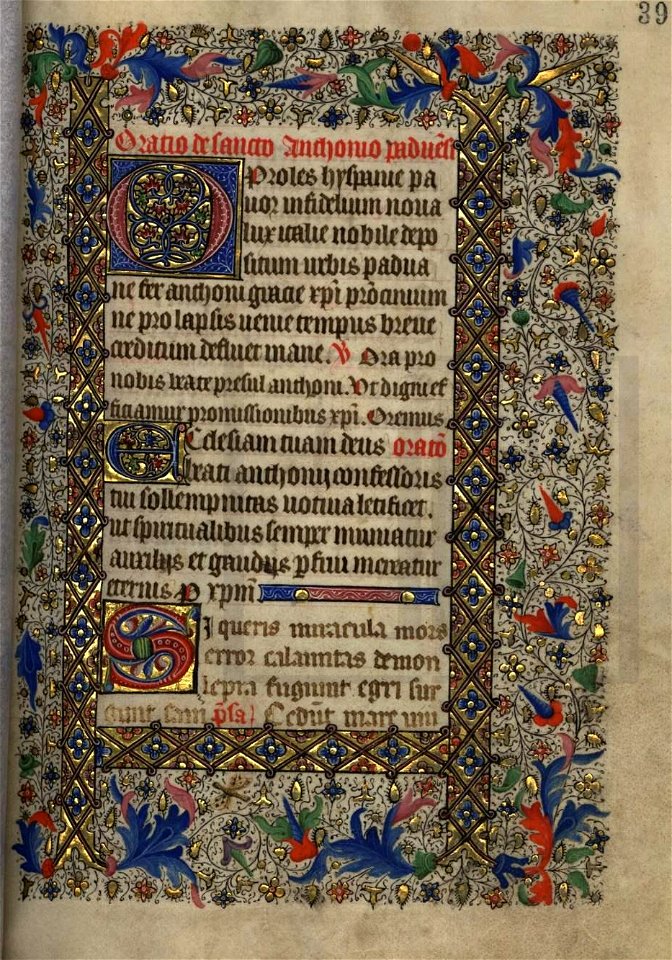 39
Oratio de sancto Anthonio paduēsi
O Proles hyspanie pa
uor infidelium noua
lux italie nobile depo
situm urbis padua
ne fer anthoni gracie xp̄i prōcinium
ne prolapsis uenie tempus breue
creditum defluet inane. V Ora pro
nobis beate presul anthoni. Vt digni ef
ficiamur promissionibus xp̄i. Oremus.
ECclesiam tuam deus oratō
beati anthonij confessoris
tui sollempnitas uotiua letificet.
ut spiritualibus semper muniatur
auxilijs et gaudijs ꝑfrui mereatur
eternis P xpm̄
SI queris miracula mors
error calamitas demon
lepra fugiunt egri sur
gunt sani p̄sa. Cedūt mare uin